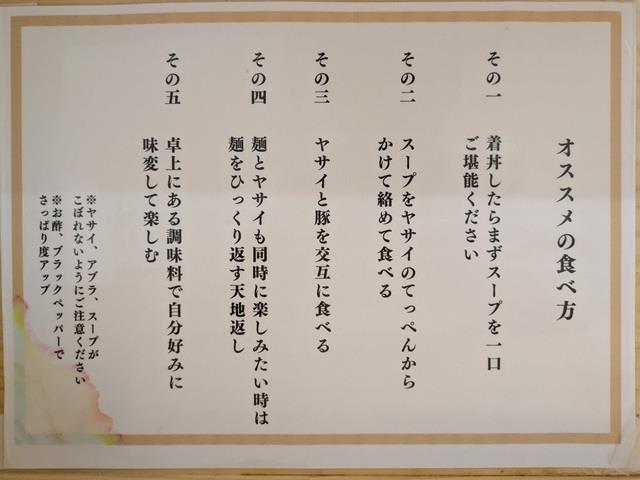 オススメの食べ方
その一 着丼したらまずスープを一口
ご堪能ください
その二 スープをヤサイのてっぺんから
かけて絡めて食べる
その三 ヤサイと豚を交互に食べる
その四 麺とヤサイも同時に楽しみたい時は
麺をひっくり返す天地返し
その五 卓上にある調味料で自分好みに
味変して楽しむ
※ヤサイ、アブラ、スープが
こぼれないようにご注意ください
※お酢、ブラックペッパーで
さっぱり度アップ